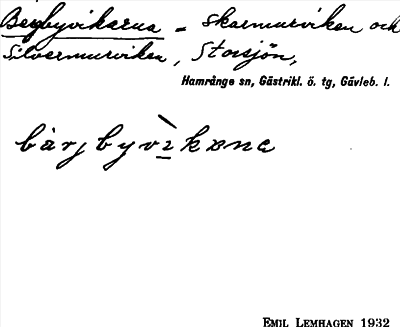 Bergbyvikarna = Skarmurviken och
Silvermurviken, Storsjön,
Hamrånge sn, Gästrikl. ö. tg, Gävleb. l.
bàrjbyvìkạna
EMIL LEMHAGEN 1932